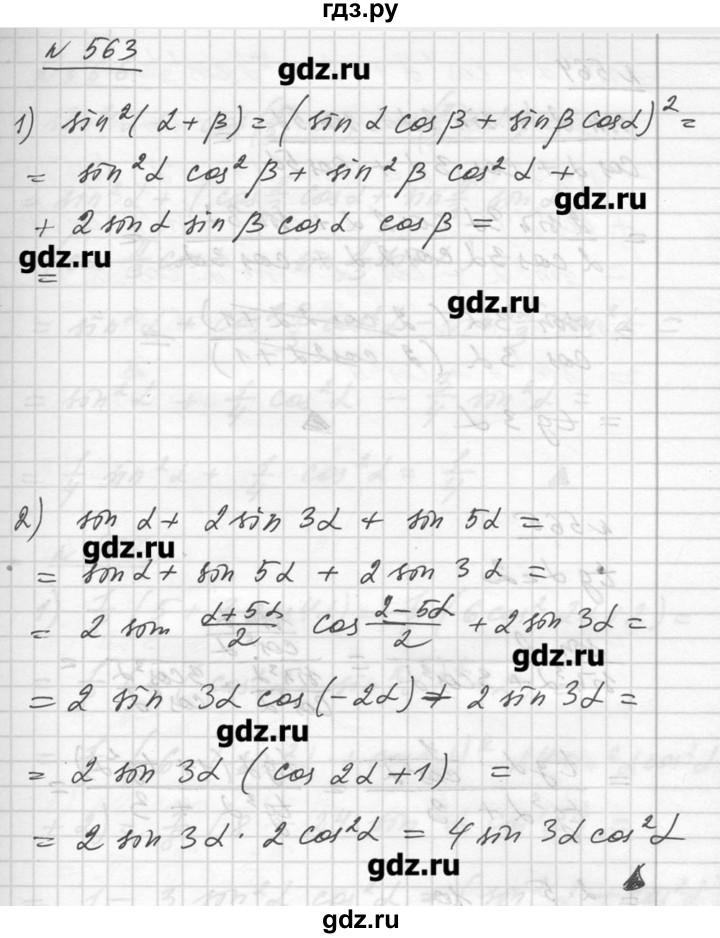 гдз.ру
N 563
gdz.ru
1) sin²(α+β) = (sin α cos β + sin β cos α)² =
= sin²α cos²β + sin²β cos²α +
gdz.ru
+ 2 sin α sin β cos α cos β =
gdz.ru
=
gdz.ru
2) sin α + 2 sin 3α + sin 5α =
gdz.ru
= sin α + sin 5α + 2 sin 3α =
= 2 sin (α+5α)/2 cos (α−5α)/2 + 2 sin 3α =
gdz.ru
= 2 sin 3α cos(−2α) + 2 sin 3α =
gdz.ru
= 2 sin 3α (cos 2α + 1) =
= 2 sin 3α · 2 cos²α = 4 sin 3α cos²α
gdz.ru
gdz.ru